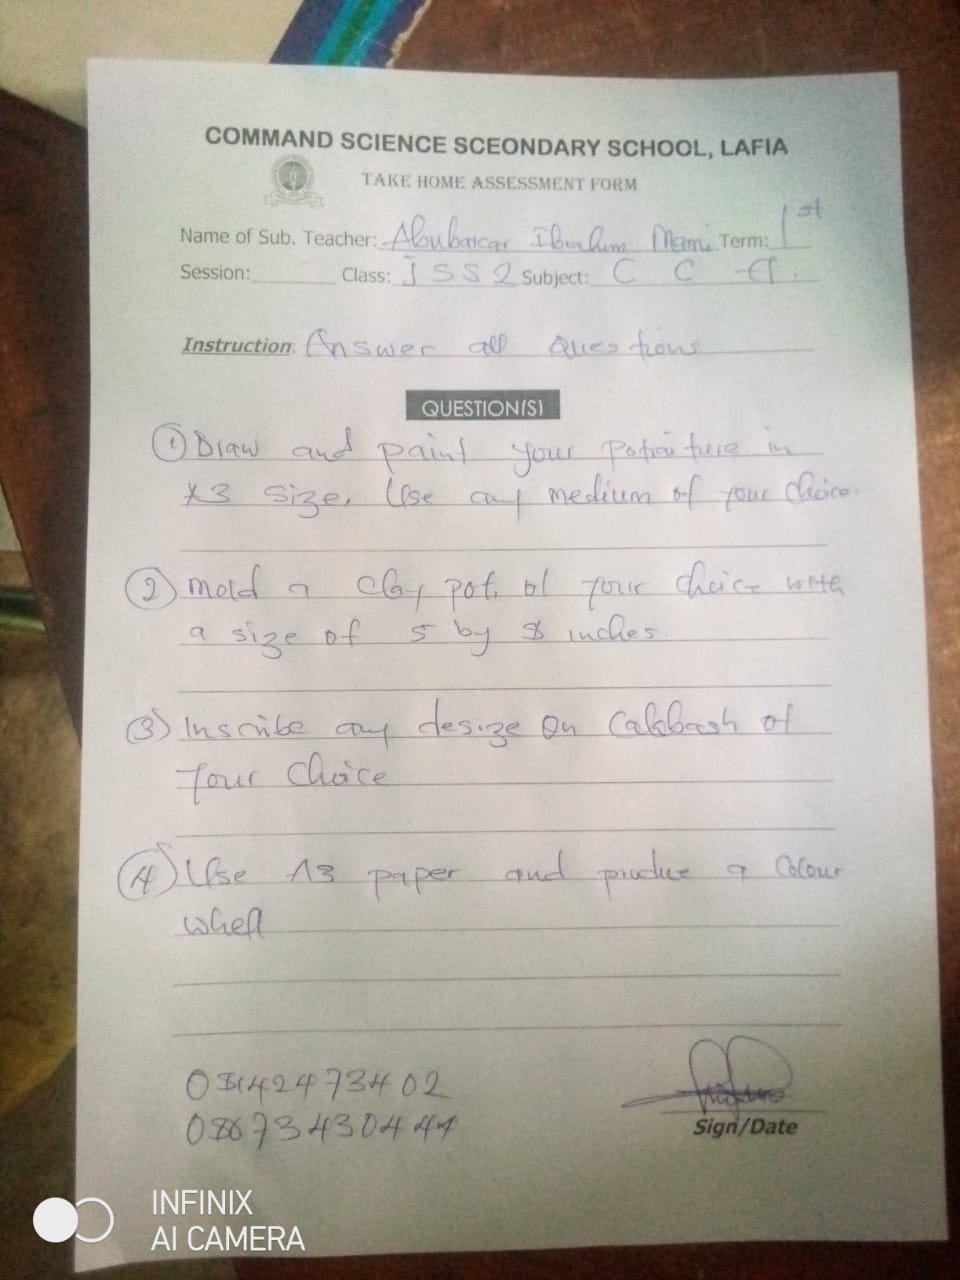 COMMAND SCIENCE SCEONDARY SCHOOL, LAFIA
TAKE HOME ASSESSMENT FORM
Name of Sub. Teacher: Abubakar Ibrahim Term: 1st
Session: Class: JSS2 Subject: C C A.
Instruction: Answer all Questions
QUESTION(S)
① Draw and paint your in
size. Use any medium of your choice.
② Mold a clay pot of your choice with
a size of 5 by inches.
③ Inscribe any desize on Calabash of
your Choice
④ Use A3 paper and produce a Colour
473402
0 73430444
Sign/Date
INFINIX
AI CAMERA